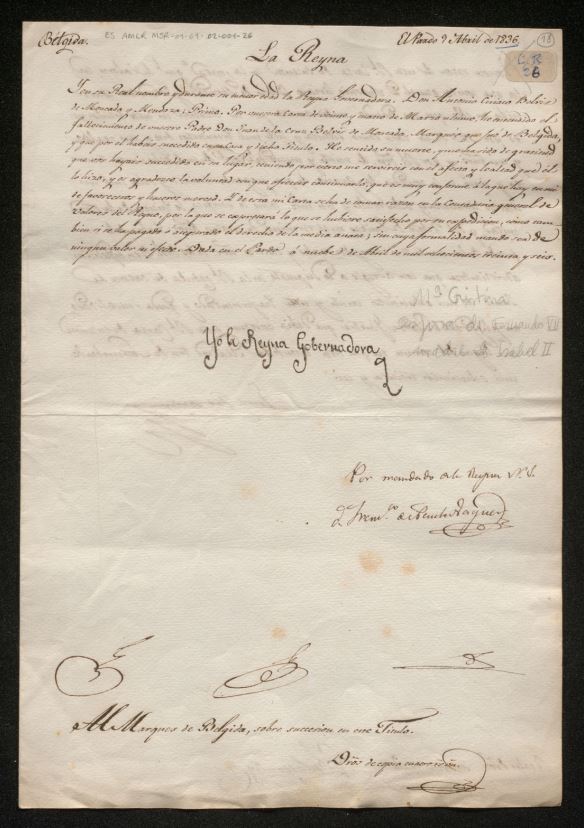 Belgida.
ES AMLR MSR-01-01-02-001-26
El Pardo 9 Abril de 1836.
18
C.R
26
La Reyna
I en su Real nombre y durante su menor edad la Reyna Governadora. Don Antonio Ciriaco Belvis
de Moncada y Mendoza: Primo. Por vuestra carta de veinte y nueve de Marzo último, he entendido el
fallecimiento de vuestro Padre Don Juan de la Cruz Belvis de Moncada, Marques que fue de Belgida,
y que por él habeis succedido en su Casa y dicho Titulo. He sentido su muerte, y no ha sido de gravedad
que vos hayais succedido en su lugar, teniendo por cierto me servireis con el afecto y lealtad que él
lo hizo, y os agradezco la voluntad con que ofreceis continuarlo, que es muy conforme á la que hay en mi
de favoreceros y haceros merced. I de esta mi Carta se ha de tomar razon en la Contaduria general de
Valores del Reyno, por la que se expresará lo que se hubiere satisfecho por su expedicion, como tam
bien si se ha pagado ó asegurado el derecho de la media anata; sin cuya formalidad mando sea de
ningun valor ni efecto. Dada en el Pardo á nuebe de Abril de mil ochocientos treinta y seis.
Mª Cristina
de Fernando VII
Isabel II
Yo la Reyna Gobernadora
Por mandado de la Reyna N. S.
Al Marques de Belgida, sobre succesion en este Titulo.
Dros de copia